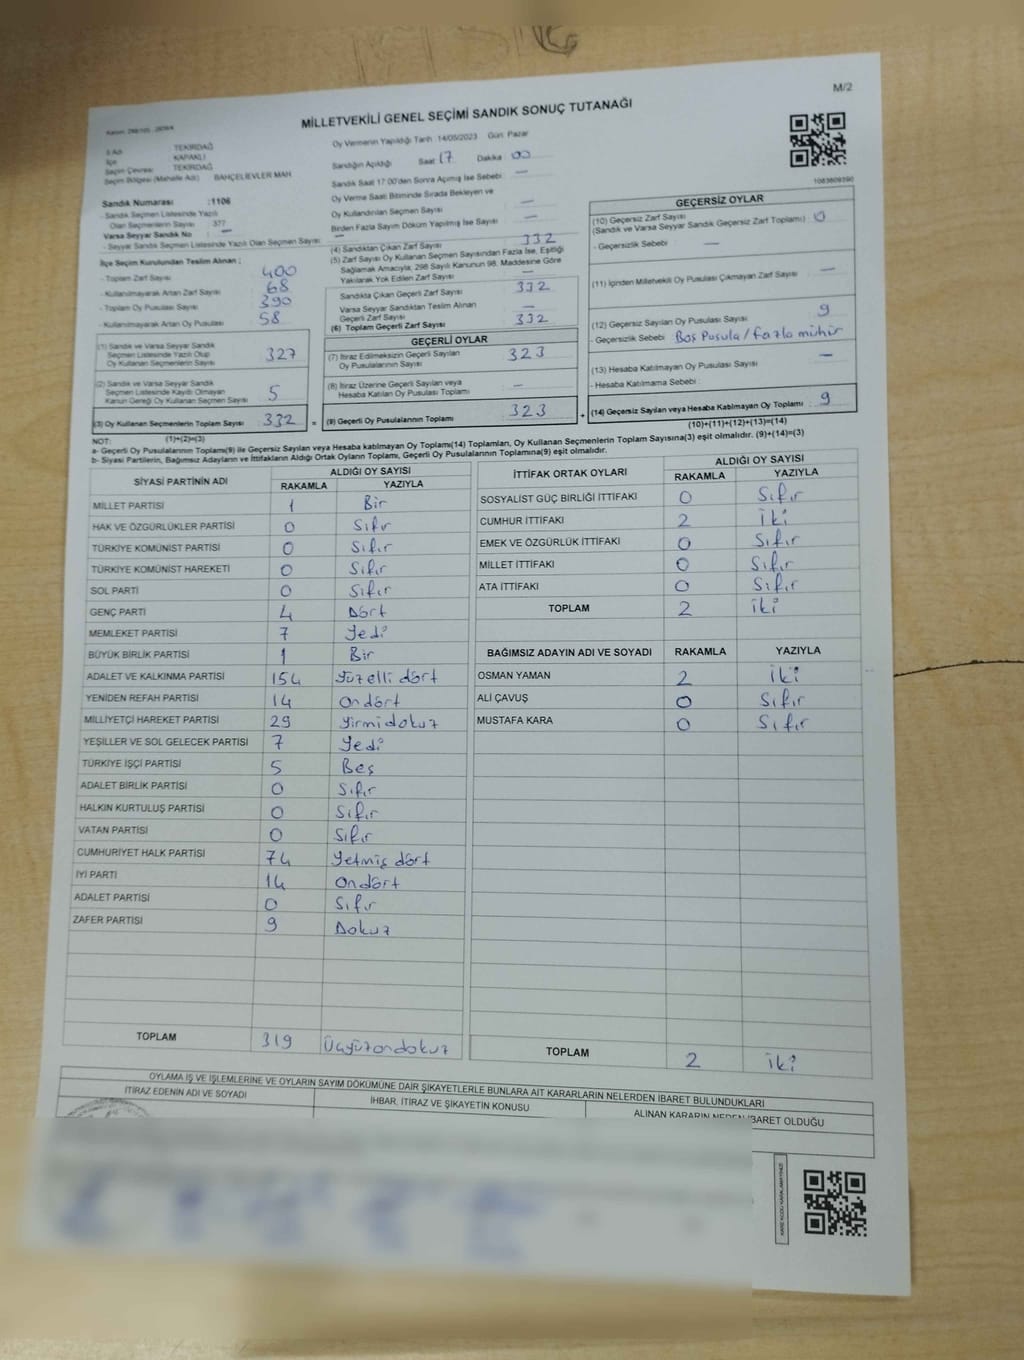 M/2
MİLLETVEKİLİ GENEL SEÇİMİ SANDIK SONUÇ TUTANAĞI
İl Adı : TEKİRDAĞ
İlçe : KAPAKLI
Seçim Çevresi : TEKİRDAĞ
Seçim Bölgesi (Mahalle Adı) : BAHÇELİEVLER MAH
Sandık Numarası :1106
- Sandık Seçmen Listesinde Yazılı
Olan Seçmenlerin Sayısı : 377
Varsa Seyyar Sandık No : —
- Seyyar Sandık Seçmen Listesinde Yazılı Olan Seçmen Sayısı : —
İlçe Seçim Kurulundan Teslim Alınan ;
- Toplam Zarf Sayısı 400
- Kullanılmayarak Artan Zarf Sayısı 68
- Toplam Oy Pusulası Sayısı 390
- Kullanılmayarak Artan Oy Pusulası 58
(1) Sandık ve Varsa Seyyar Sandık
Seçmen Listesinde Yazılı Olup
Oy Kullanan Seçmenlerin Sayısı 327
(2) Sandık ve Varsa Seyyar Sandık
Seçmen Listesinde Kaydı Olmayan
Kanun Gereği Oy Kullanan Seçmen Sayısı 5
(3) Oy Kullanan Seçmenlerin Toplam Sayısı 332 =
(1)+(2)=(3)
Oy Vermenin Yapıldığı Tarih 14/05/2023 Gün: Pazar
Sandığın Açıldığı Saat 17 Dakika : 00
Sandık Saat 17:00'den Sonra Açılmış İse Sebebi : —
Oy Verme Saati Bitiminde Sırada Bekleyen ve
Oy Kullandırılan Seçmen Sayısı —
Birden Fazla Sayım Döküm Yapılmış İse Sayısı —
(4) Sandıktan Çıkan Zarf Sayısı 332
(5) Zarf Sayısı Oy Kullanan Seçmen Sayısından Fazla İse, Eşitliği
Sağlamak Amacıyla, 298 Sayılı Kanunun 98. Maddesine Göre
Yakılarak Yok Edilen Zarf Sayısı —
Sandıkta Çıkan Geçerli Zarf Sayısı 332
Varsa Seyyar Sandıktan Teslim Alınan
Geçerli Zarf Sayısı —
(6) Toplam Geçerli Zarf Sayısı 332
GEÇERLİ OYLAR
(7) İtiraz Edilmeksizin Geçerli Sayılan
Oy Pusulalarının Sayısı 323
(8) İtiraz Üzerine Geçerli Sayılan veya
Hesaba Katılan Oy Pusulası Toplamı —
(9) Geçerli Oy Pusulalarının Toplamı 323 +
1083609390
GEÇERSİZ OYLAR
(10) Geçersiz Zarf Sayısı 0
(Sandık ve Varsa Seyyar Sandık Geçersiz Zarf Toplamı)
- Geçersizlik Sebebi : —
(11) İçinden Milletvekili Oy Pusulası Çıkmayan Zarf Sayısı —
(12) Geçersiz Sayılan Oy Pusulası Sayısı 9
- Geçersizlik Sebebi Boş Pusula / fazla mühür
(13) Hesaba Katılmayan Oy Pusulası Sayısı —
- Hesaba Katılmama Sebebi
(14) Geçersiz Sayılan veya Hesaba Katılmayan Oy Toplamı 9
(10)+(11)+(12)+(13)=(14)
NOT:
a- Geçerli Oy Pusulalarının Toplamı(9) ile Geçersiz Sayılan veya Hesaba katılmayan Oy Toplamı(14) Toplamları, Oy Kullanan Seçmenlerin Toplam Sayısına(3) eşit olmalıdır. (9)+(14)=(3)
b- Siyasi Partilerin, Bağımsız Adayların ve İttifakların Aldığı Ortak Oyların Toplamı, Geçerli Oy Pusulalarının Toplamına(9) eşit olmalıdır.
SİYASİ PARTİNİN ADI ALDIĞI OY SAYISI
RAKAMLA YAZIYLA
MİLLET PARTİSİ 1 Bir
HAK VE ÖZGÜRLÜKLER PARTİSİ 0 Sıfır
TÜRKİYE KOMÜNİST PARTİSİ 0 Sıfır
TÜRKİYE KOMÜNİST HAREKETİ 0 Sıfır
SOL PARTİ 0 Sıfır
GENÇ PARTİ 4 Dört
MEMLEKET PARTİSİ 7 Yedi
BÜYÜK BİRLİK PARTİSİ 1 Bir
ADALET VE KALKINMA PARTİSİ 154 Yüzelli dört
YENİDEN REFAH PARTİSİ 14 Ondört
MİLLİYETÇİ HAREKET PARTİSİ 29 Yirmidokuz
YEŞİLLER VE SOL GELECEK PARTİSİ 7 Yedi
TÜRKİYE İŞÇİ PARTİSİ 5 Beş
ADALET BİRLİK PARTİSİ 0 Sıfır
HALKIN KURTULUŞ PARTİSİ 0 Sıfır
VATAN PARTİSİ 0 Sıfır
CUMHURİYET HALK PARTİSİ 74 Yetmiş dört
İYİ PARTİ 14 Ondört
ADALET PARTİSİ 0 Sıfır
ZAFER PARTİSİ 9 Dokuz
TOPLAM 319 Üçyüzondokuz
İTTİFAK ORTAK OYLARI ALDIĞI OY SAYISI
RAKAMLA YAZIYLA
SOSYALİST GÜÇ BİRLİĞİ İTTİFAKI 0 Sıfır
CUMHUR İTTİFAKI 2 İki
EMEK VE ÖZGÜRLÜK İTTİFAKI 0 Sıfır
MİLLET İTTİFAKI 0 Sıfır
ATA İTTİFAKI 0 Sıfır
TOPLAM 2 İki
BAĞIMSIZ ADAYIN ADI VE SOYADI RAKAMLA YAZIYLA
OSMAN YAMAN 2 İki
ALİ ÇAVUŞ 0 Sıfır
MUSTAFA KARA 0 Sıfır
TOPLAM 2 İki
OYLAMA İŞ VE İŞLEMLERİNE VE OYLARIN SAYIM DÖKÜMÜNE DAİR ŞİKAYETLERLE BUNLARA AİT KARARLARIN NELERDEN İBARET BULUNDUKLARI
İTİRAZ EDENİN ADI VE SOYADI İHBAR, İTİRAZ VE ŞİKAYETİN KONUSU ALINAN KARARIN NEDEN İBARET OLDUĞU